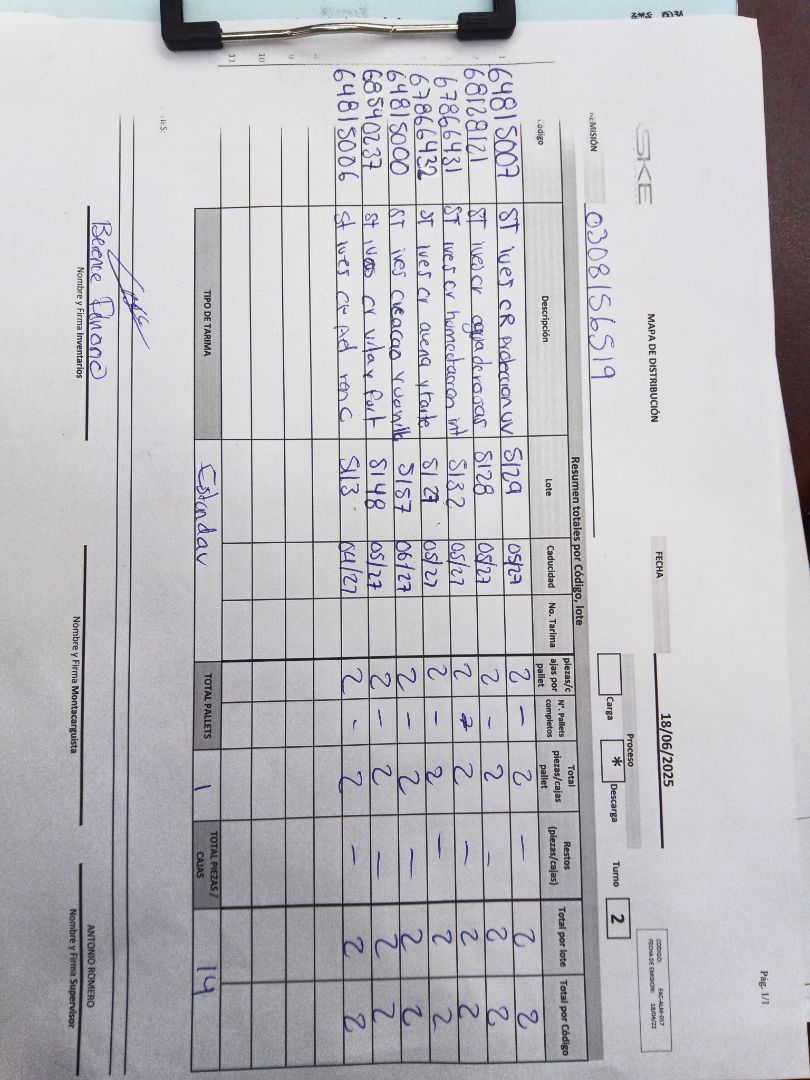 SKE
MAPA DE DISTRIBUCIÓN
Pág. 1/1
CODIGO: FAC-ALM-017
FECHA DE EMISION: 18/04/22
FECHA 18/06/2025
Proceso
REMISIÓN 0308156519
Carga * Descarga Turno 2
Resumen totales por Código, lote
Código Descripción Lote Caducidad No. Tarima piezas/cajas por pallet N°. Pallets completos Total piezas/cajas pallet Restos (piezas/cajas) Total por lote Total por Código
1 64815007 ST Ives CR Proteccion UV 5129 05/27 2 – 2 – 2 2
68128121 ST Ives cr agua de rosas 5128 05/27 2 – 2 – 2 2
67866431 ST Ives cr humectacion int 5132 05/27 2 2 – 2 2
67866432 ST Ives cr avena y 5127 05/27 2 – 2 – 2 2
64815000 ST Ives 5157 06/27 2 – 2 – 2 2
68540237 St Ives cr 5148 05/27 2 – 2 – 2 2
64815006 St Ives cr 5113 04/27 2 - 2 – 2 2
9
10
11
TIPO DE TARIMA Estandar TOTAL PALLETS 1 TOTAL PIEZAS / CAJAS 14
Berenice
ANTONIO ROMERO
Nombre y Firma Inventarios Nombre y Firma Montacarguista Nombre y Firma Supervisor